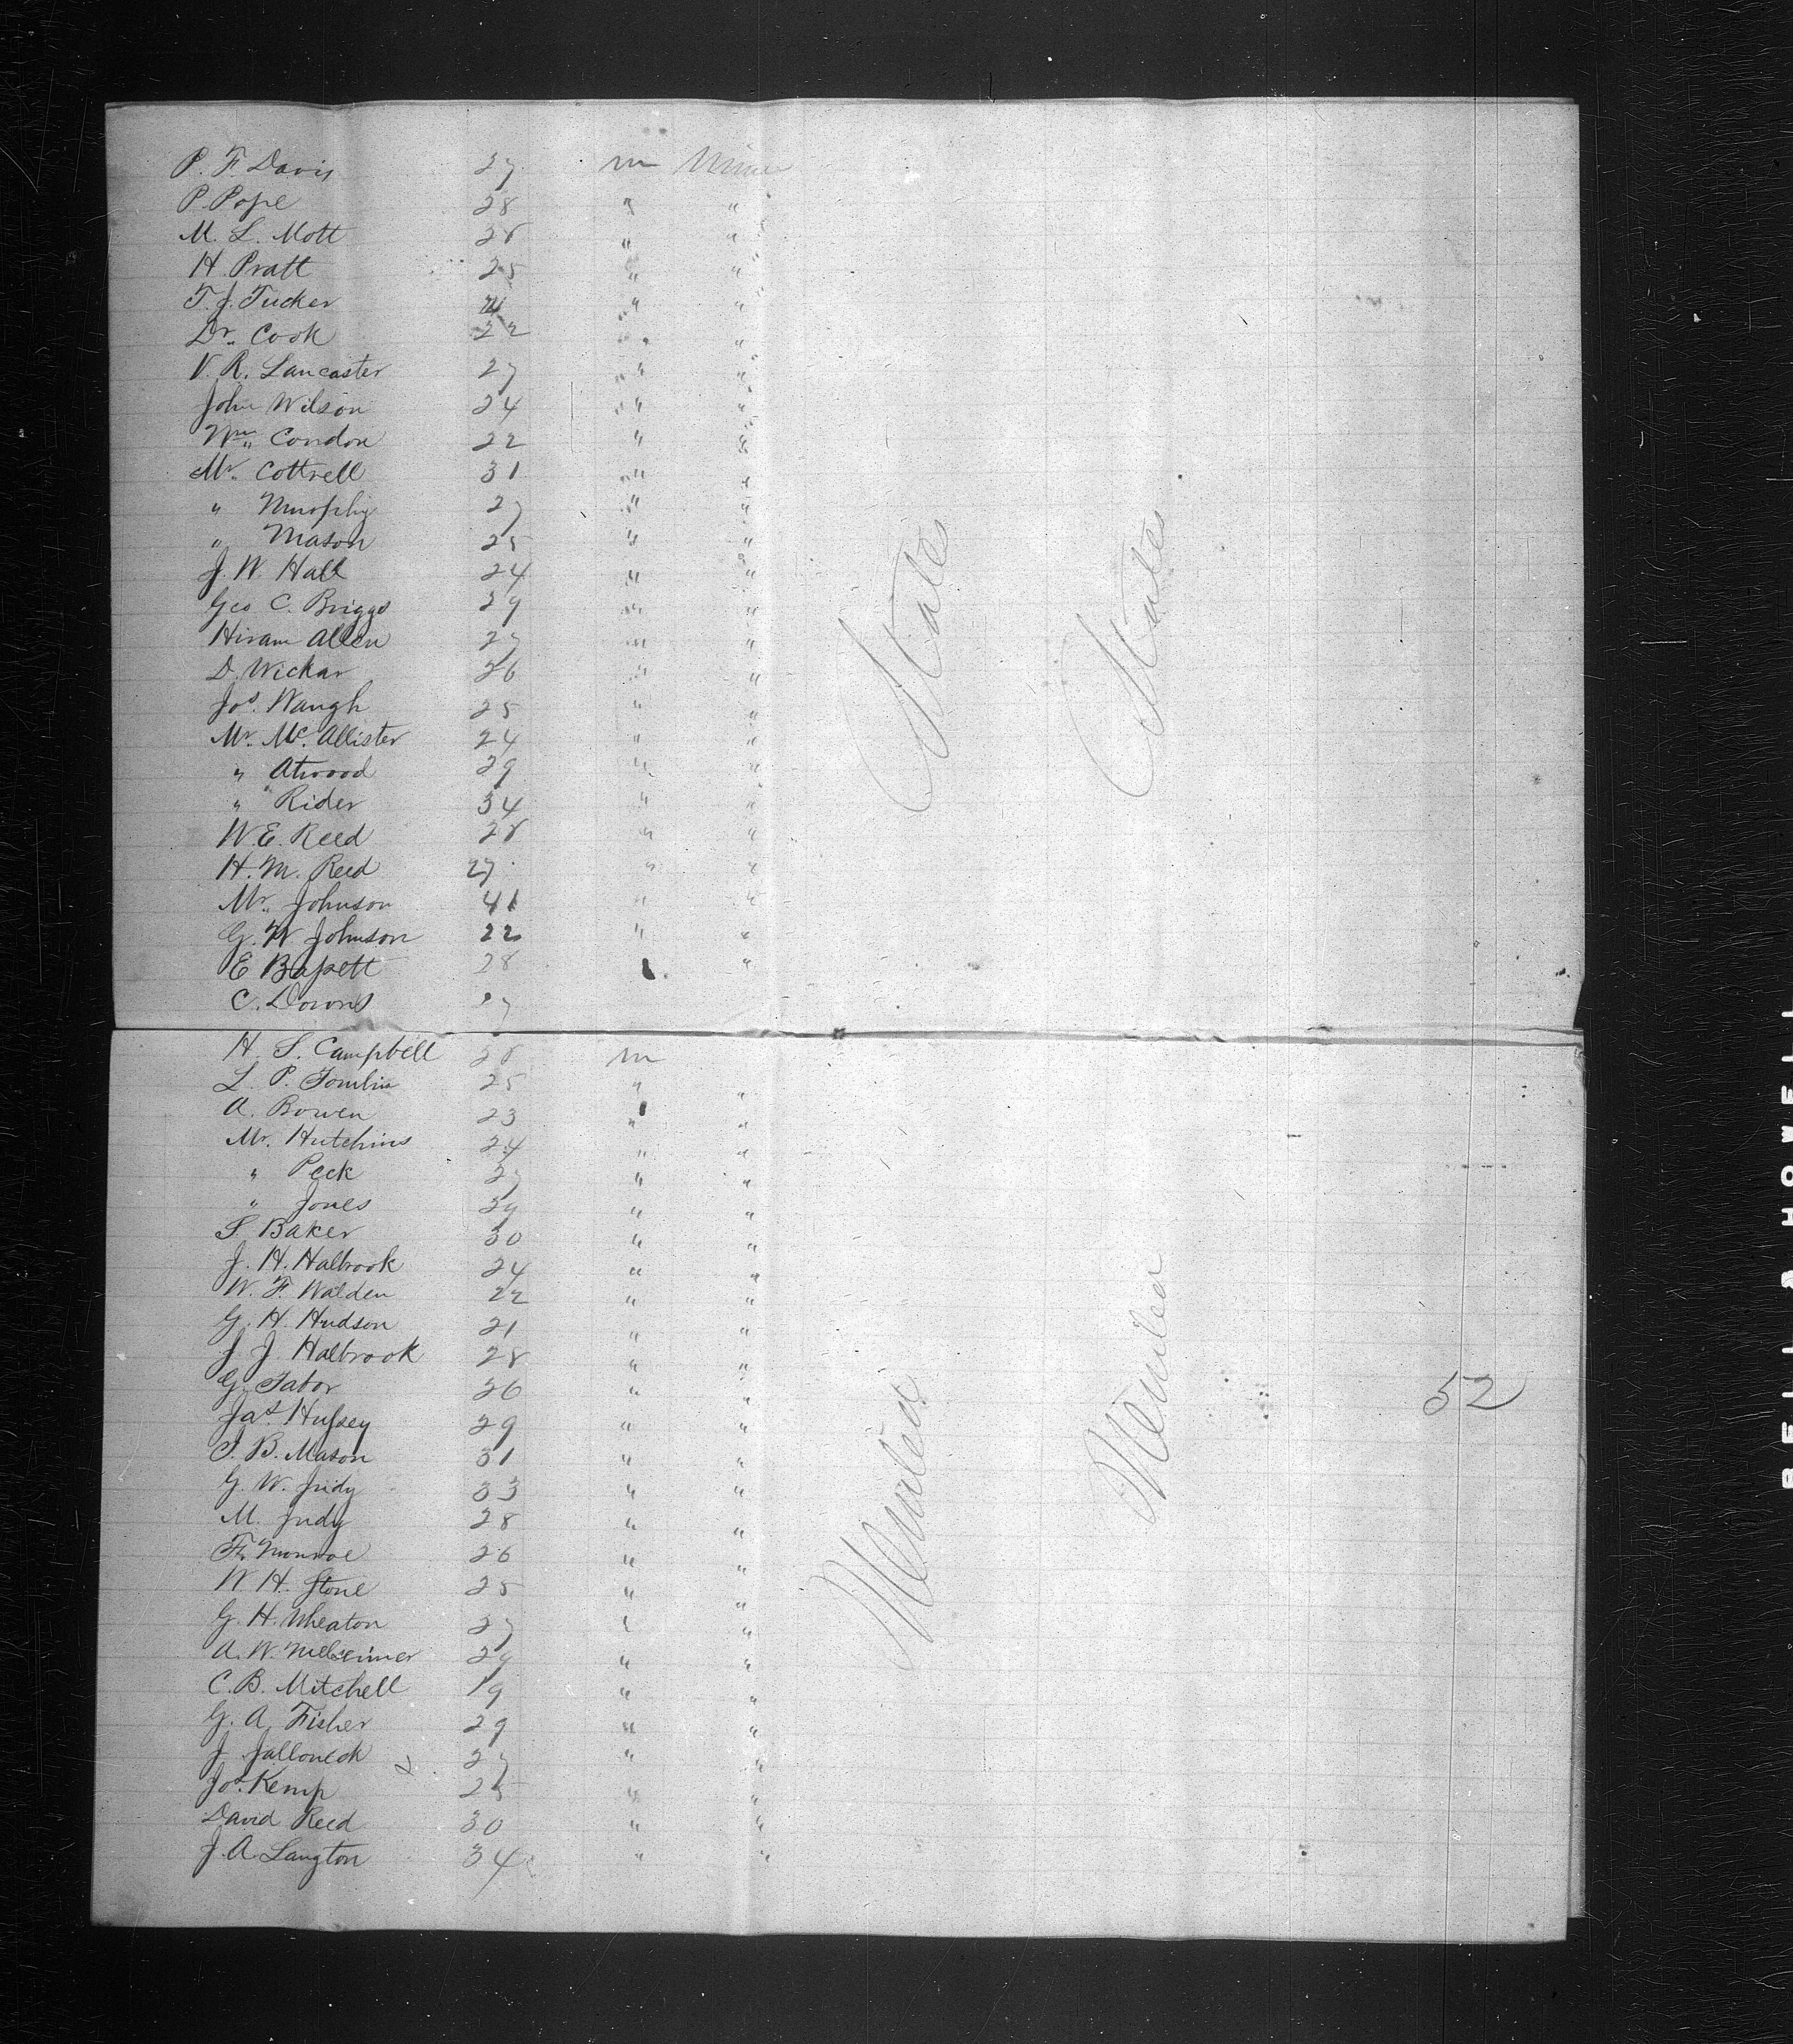 P. F. Davis 27 m Miner
P. Pope 28 " "
M. L. Mott 28 " "
H. Pratt 25 " "
T. J. Tucker " "
Dr. Cook 22 " "
V. R. Lancaster 27 " "
John Wilson 24 " "
Wm. Condon 22 " "
Mr. Cottrell 31 " "
" Murphy 27 " "
" Mason 25 " "
J. W. Hall 24 " "
Geo C. Briggs 29 " "
Hiram Allen 27 " "
D. Wickar 26 " "
Jos. Waugh 25 " "
Mr. Mc. Allister 24 " "
" Atwood 29 " "
" Rider 34 " "
W. E. Reed 28 " "
H. M. Reed 27 " "
Mr. Johnson 41 " "
G. W Johnson 22 " "
E Bassett 28 "
C. Downs
H. S. Campbell 28 m
L. P. Tomlin 25 " "
A. Bowen 23 " "
Mr. Hutchins 24 " "
" Peck 27 " "
" Jones 34 " "
S. Baker 30 " "
J. H. Halbrook 24 " "
W. F. Walden 22 " "
G. H. Hudson 21 " "
J. J. Halbrook 28 " "
G. Tabor 36 " "
Jas. Hussey 29 " "
S. B. Mason 31 " "
G. W. Judy 33 " "
M. Judy 28 " "
F. Monroe 26 " "
W H. Stone 25 " "
G. H. Wheaton 27 " "
A. W. 29 " "
C. B. Mitchell 19 " "
G. A. Fisher 29 " "
J. 27 " "
Jos. Kemp 25 " "
David Reed 30 " "
J. A. Langton 34 " "
States
States
52
BELL & HOWELL